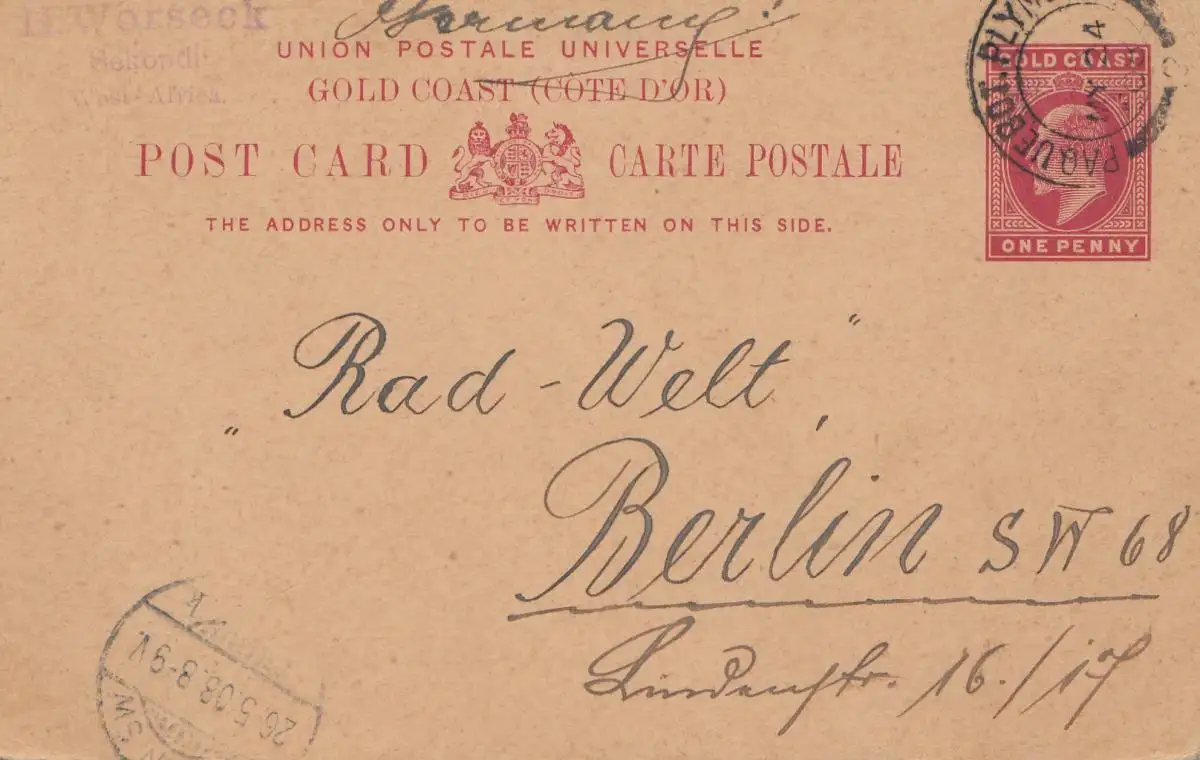 H Worseck
Sekondi
West-Africa.
Germany!
UNION POSTALE UNIVERSELLE
GOLD COAST (CÔTE D'OR)
POST CARD CARTE POSTALE
THE ADDRESS ONLY TO BE WRITTEN ON THIS SIDE.
GOLD COAST
ONE PENNY
PAQUEBOT. PLYM
"Rad-Welt",
Berlin SW 68
Lindenstr. 16./17
26.5.08.8-9V.
SW